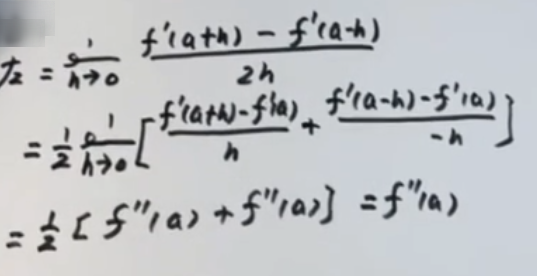 左 = lim h→0 f'(a+h) - f'(a-h) / 2h
= 1/2 lim h→0 [ f'(a+h)-f'(a) / h + f'(a-h)-f'(a) / -h ]
= 1/2 [ f''(a) + f''(a) ] = f''(a)